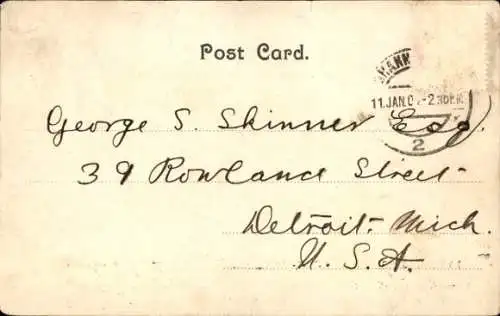 Post Card.
11.JAN.0
George S. Skinner Esq.
2
39 Rowland Street
Detroit Mich.
U. S. A.